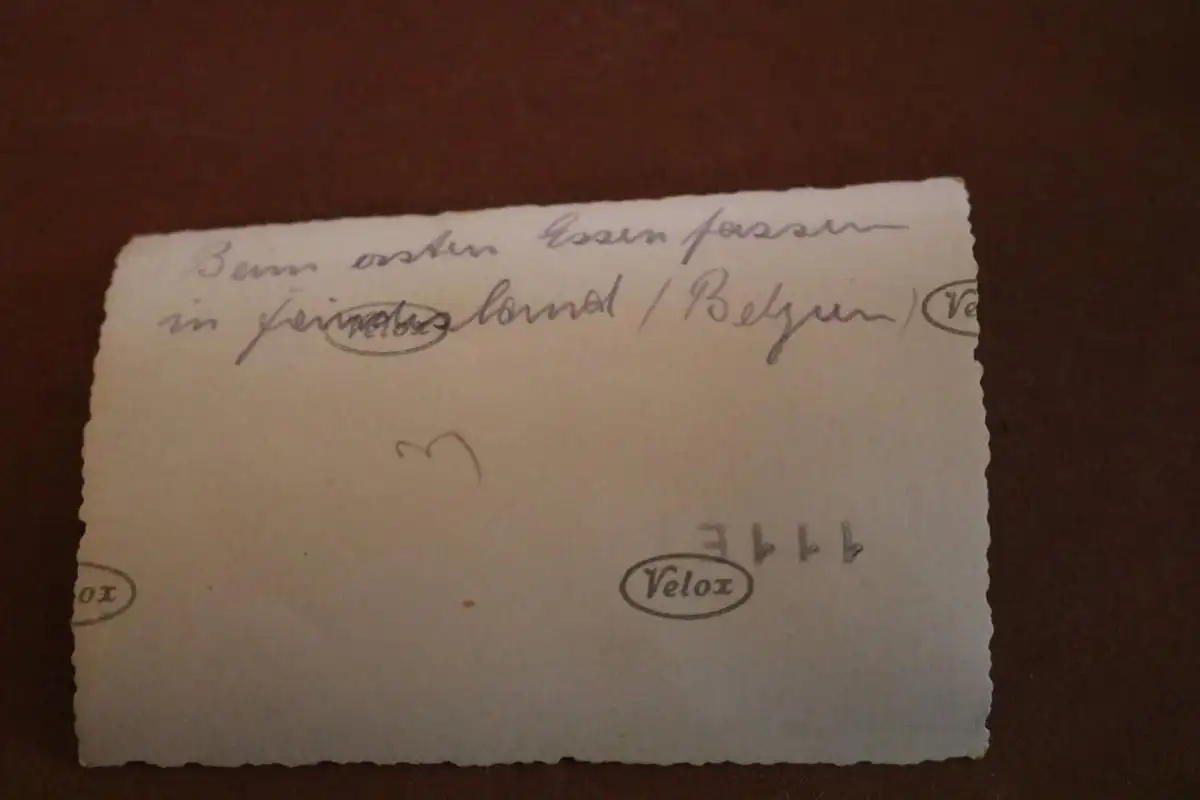 Beim ersten Essen fassen
in feindesland / Belgien )
Velox
Ve
3
111E
ox
Velox